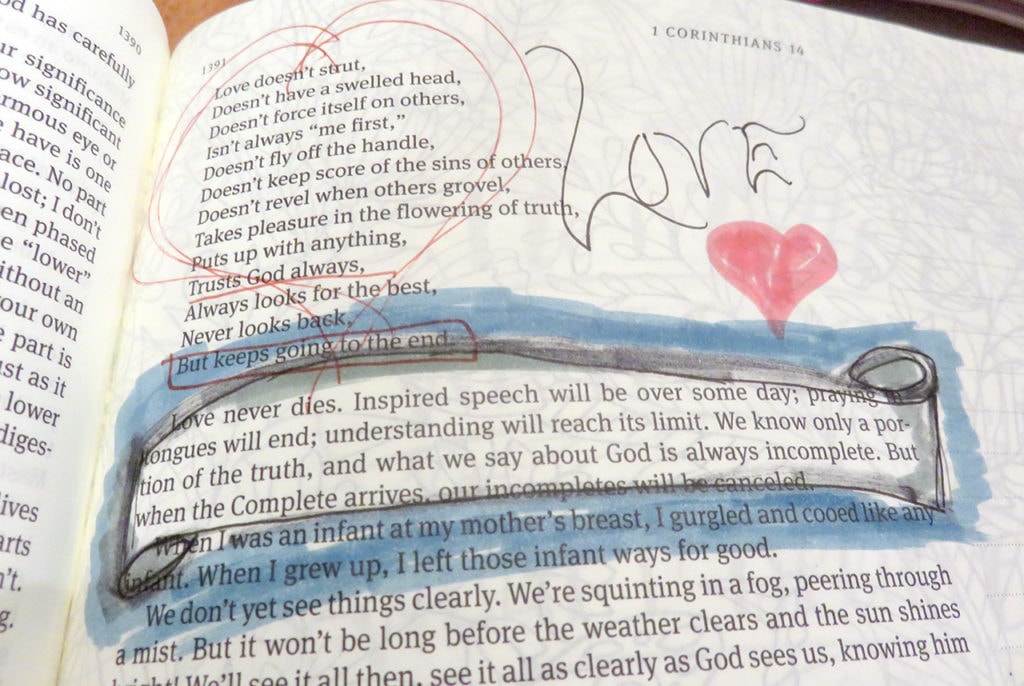 od has carefully
1390
ur significance
ow significant
rmous eye or
e have is one
ace. No part
lost; I don't
en phased
e "lower"
ithout an
your own
e part is
ust as it
lower
diges-
lives
arts
n't.
g.
1391
1 CORINTHIANS 14
LOVE
Love doesn't strut,
Doesn't have a swelled head,
Doesn't force itself on others,
Isn't always "me first,"
Doesn't fly off the handle,
Doesn't keep score of the sins of others,
Doesn't revel when others grovel,
Takes pleasure in the flowering of truth,
Puts up with anything,
Trusts God always,
Always looks for the best,
Never looks back,
But keeps going to the end.
Love never dies. Inspired speech will be over some day; praying in
tongues will end; understanding will reach its limit. We know only a por-
tion of the truth, and what we say about God is always incomplete. But
when the Complete arrives, our incompletes will be canceled.
When I was an infant at my mother's breast, I gurgled and cooed like any
infant. When I grew up, I left those infant ways for good.
We don't yet see things clearly. We're squinting in a fog, peering through
a mist. But it won't be long before the weather clears and the sun shines
bright! We'll see it all then, see it all as clearly as God sees us, knowing him